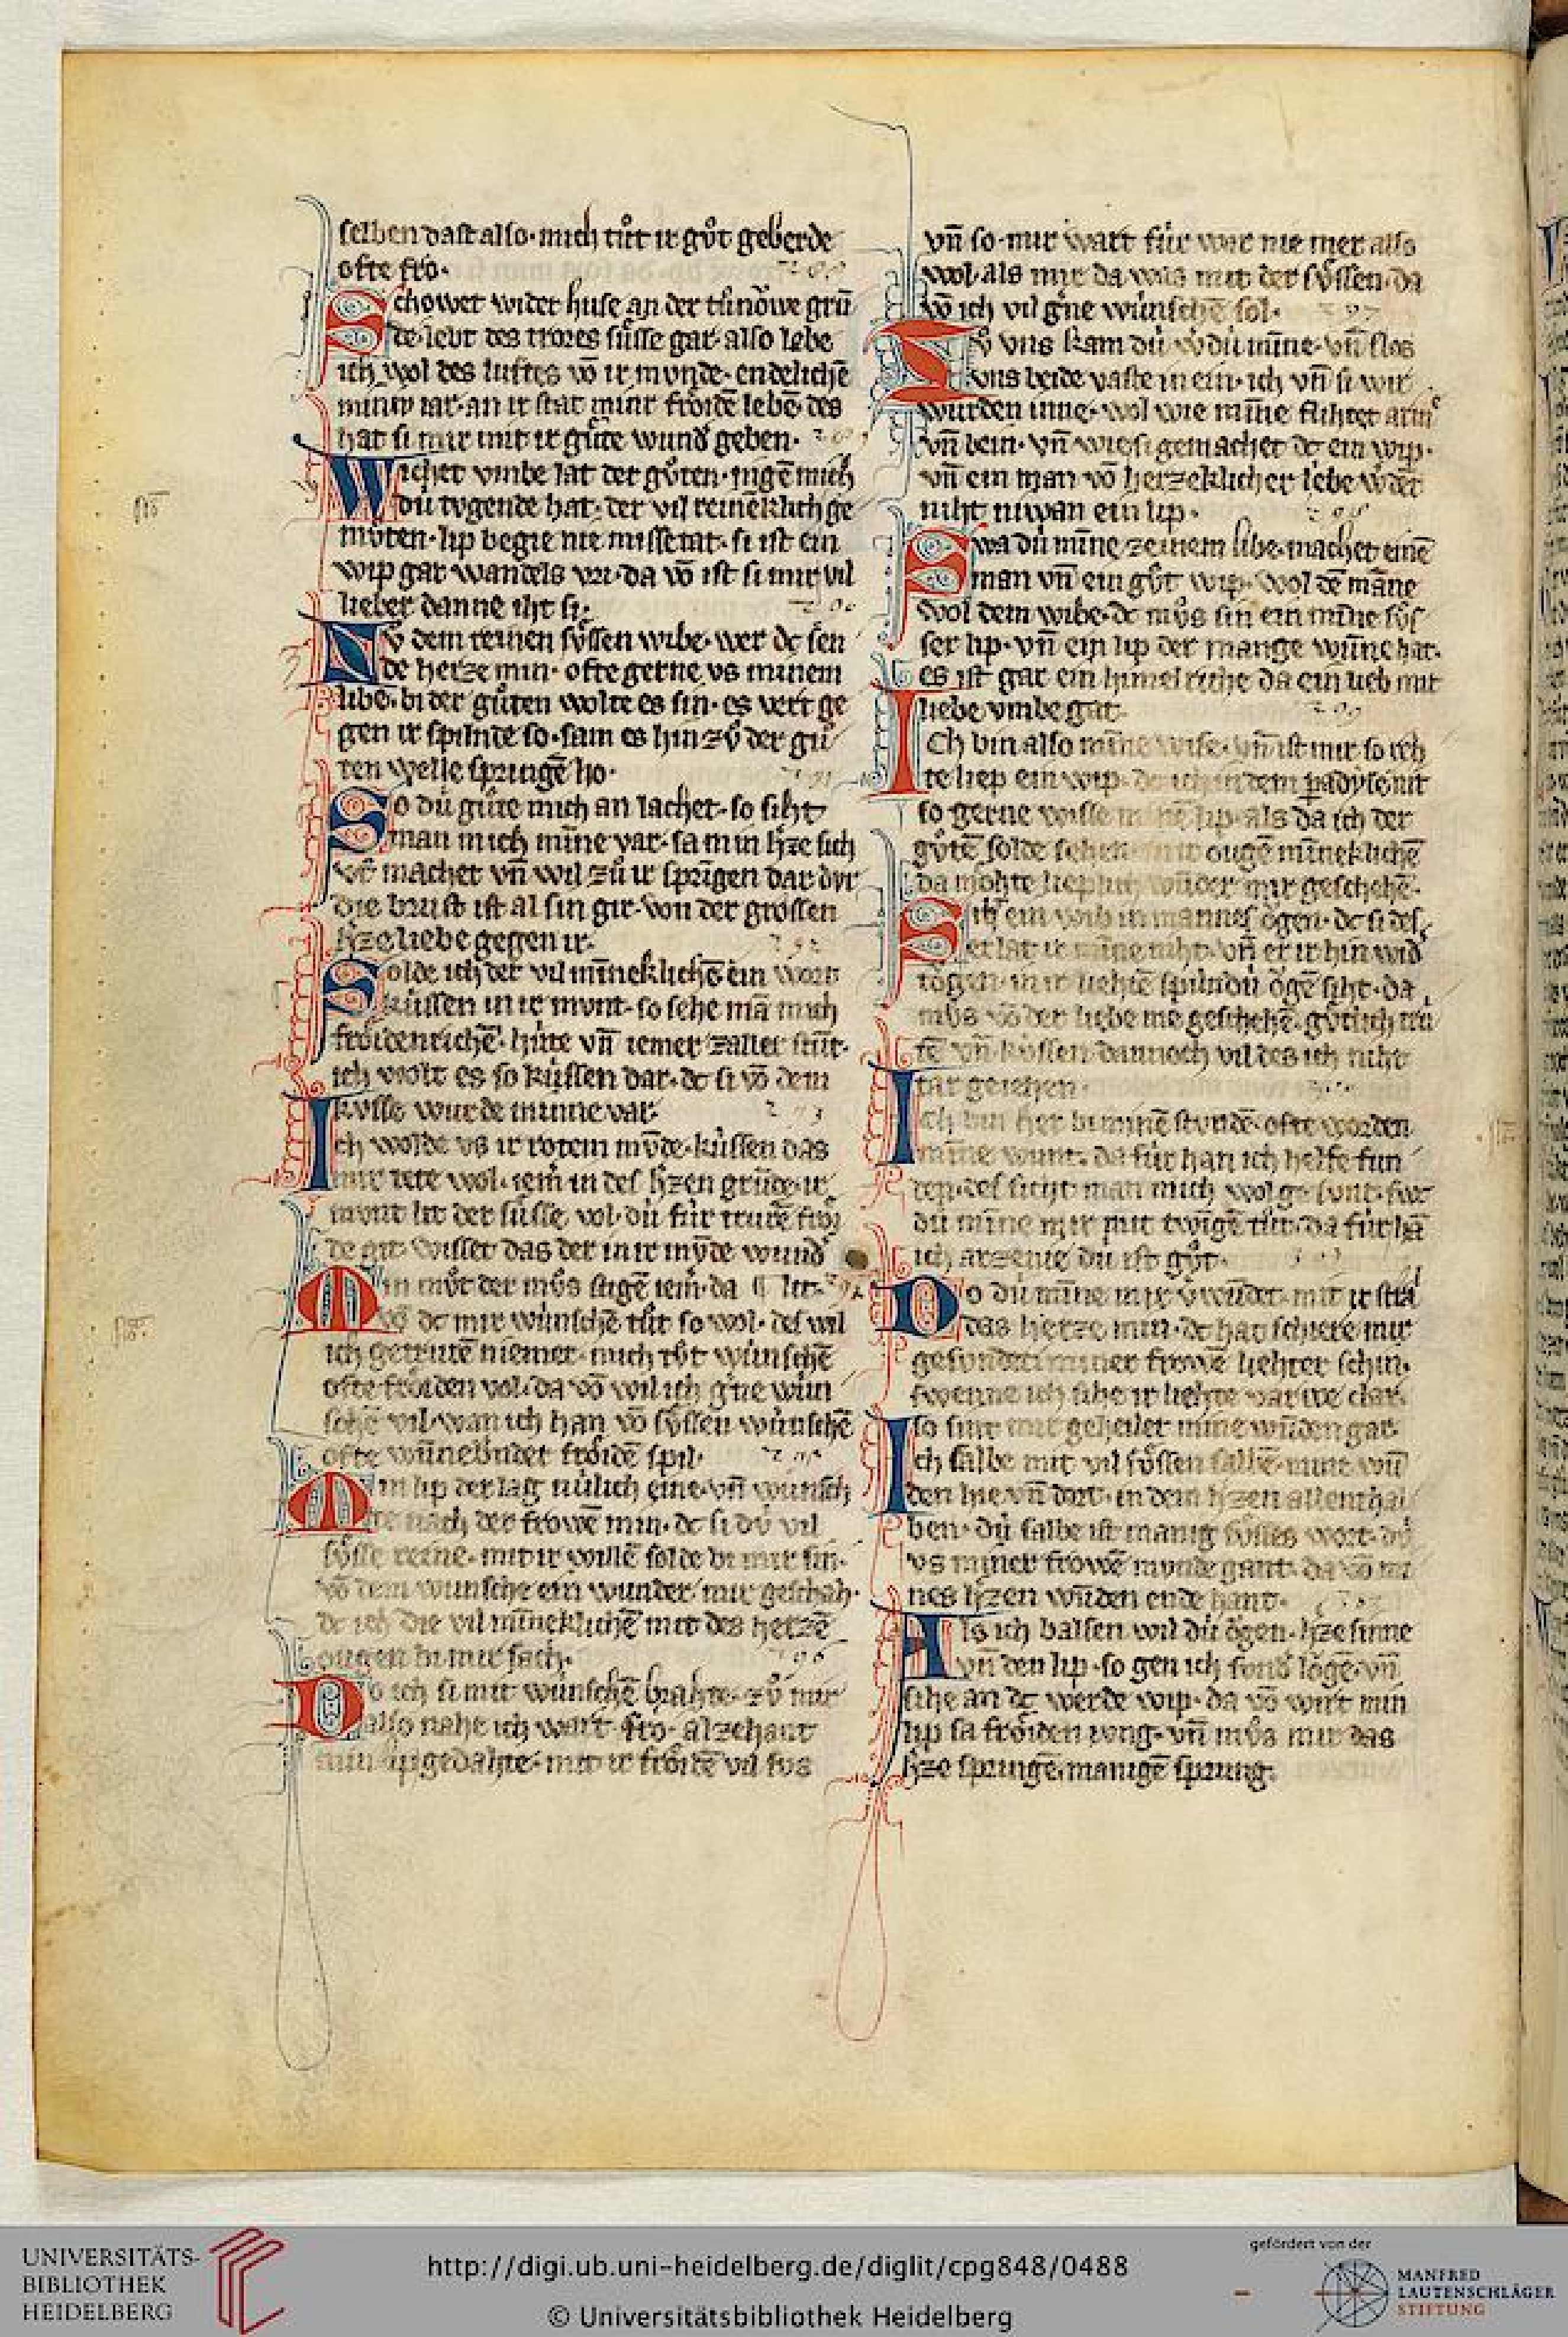 selben dast also· mich tůt ir gůt geberde
ofte fro·
Schowet wider huse an der tůnŏwe grū
de· lebt des trores süsse gar· also lebe
ich wol des luftes vō ir munde· endelichē
iar· an ir stat minr frŏidē lebē· des
hat si mir mit ir gůte wund geben·
Wichet vmbe lat der gůten· nigē mich
dü tvgende hat· der vil reineklich ge
můten· lip begie nie missetat· si ist ein
wip gar wandels vri· da vō ist si mir vil
lieber danne iht si·
Nv dem reinen sŭssen wibe· wer dc sen
de herze min· ofte gerne vs minem
libe· bi der gůten wolte es sin· es vert ge
gen ir spilnde so· sam es hin zů der gů
ten welle springē ho·
So dü gůte mich an lachet· so siht
man mich mīne var· sa min hze sich
machet vn̄ wil zů ir springen dar dvr
die brust ist al sin gir· von der grossen
hze liebe gegen ir·
Solde ich der vil mīneklichē ein wort
küssen in ir mvnt· so sehe mā mich
frŏidenrichē· hüte vn̄ iemer zaller stūt·
ich wolt es so küssen dar· dc si vō dem
kvsse wurde minne var·
Ich wolde vs ir rotem mvde· küssen das
mir tete wol· iem in des hzen grūde· ir
mvnt ist der süsse vol· dü für truren frŏi
de git· wisset das der in ir mvde wund
Min můt der můs stigē iem· da lit·
vō dc mir wünschē tůt so wol· des wil
ich getrutē niemer· mich tůt wünschē
ofte frŏiden vol· da vō wil ich gne wün
schē vil· wan ich han vō sŭssen wünschē
ofte wūnebndet frŏidē spil·
Min lip der lag nülich eine· vn̄ wunsch
te nach der frowē min· dc si dv vil
sŭsse reine· mit ir willē solde bi mir sin·
vō dem wunsche ein wunder mir geschah·
dc ich die vil mīneklichē mit des herzē
ougen bi mir sach·
Do ich si mit wünschē brahte· zů mir
also nahe ich wart fro· alzehant
min lip gedahte· mit ir frŏidē vil svs
vn̄ so· mir wart für war nie mer also
wol· als mir da was mit der sŭssen· da
vō ich vil gne wünschē sol·
Zů vns kam dü mīne· vn̄ slos
vns beide vaste in ein· ich vn̄ si wir
wurden inne· wol wie mīne flihtet arm
vn̄ bein· vn̄ wie si gemachet dc ein wip·
vn̄ ein man vō herzeklicher lebe
niht niwan ein lip·
Swa dü mīne ze einem libe· machet einē
man vn̄ ein gůt wip· wol dē māne
wol dem wibe· dc můs sin ein mīne sŭs
ser lip· vn̄ ein lip der mange wūne hat·
es ist gar ein himelriche da ein lieb mit
liebe vmbe gat·
Ich bin also mīne wise· vn̄ ist mir so reh
te liep ein wip· dc ich in dem padyse nit
so gerne wisse lip· als da ich der
gůtē solde sehen in ir ougē mīneklichē
da mohte liep mir geschehē·
Siht ein wib in mannes ŏgen· dc si des
erlat ir mīne niht· vn̄ er ir hin wid
tŏgen· in ir liehtē spilndü ŏgē siht· da
můs vō der liebe me geschehē· gůtlich trü
tē vn̄ küssen· dannoch vil des ich niht
tar geiehen·
Ich bin her bi minē stvndē· ofte worden
mīne wunt· da für han ich helfe fun
den· des siht man mich wol gesunt· swe
dü mīne mir mit twīgē tůt· da für hā
ich arzenie· dü ist gůt·
Do dü mīne mir
das herze min· dc hat schiere mir
gesundet miner frowē liehter schin·
swenne ich sihe ir liehte varwe clar·
so sint mir geheilet mine wūden gar
Ich salbe mit vil sŭssen salbē· mine wū
den hie vn̄ dort· in dem hzen allenthal
ben· dü salbe ist manig sŭsses wort· dü
vs miner frowē munde gant· da vō mi
nes hzen wūden ende hant·
Als ich balsen wil dü ŏgen· hze sinne
vn̄ den lip· so gen ich lŏgē· vn̄
sihe an dc werde wip· da vō wirt min
lip sa frŏiden iung· vn̄ můs mir das
hze springē manigē sprung·
UNIVERSITÄTS-
BIBLIOTHEK
HEIDELBERG
http://digi.ub.uni-heidelberg.de/diglit/cpg848/0488
© Universitätsbibliothek Heidelberg
gefördert von der
MANFRED
LAUTENSCHLÄGER
STIFTUNG